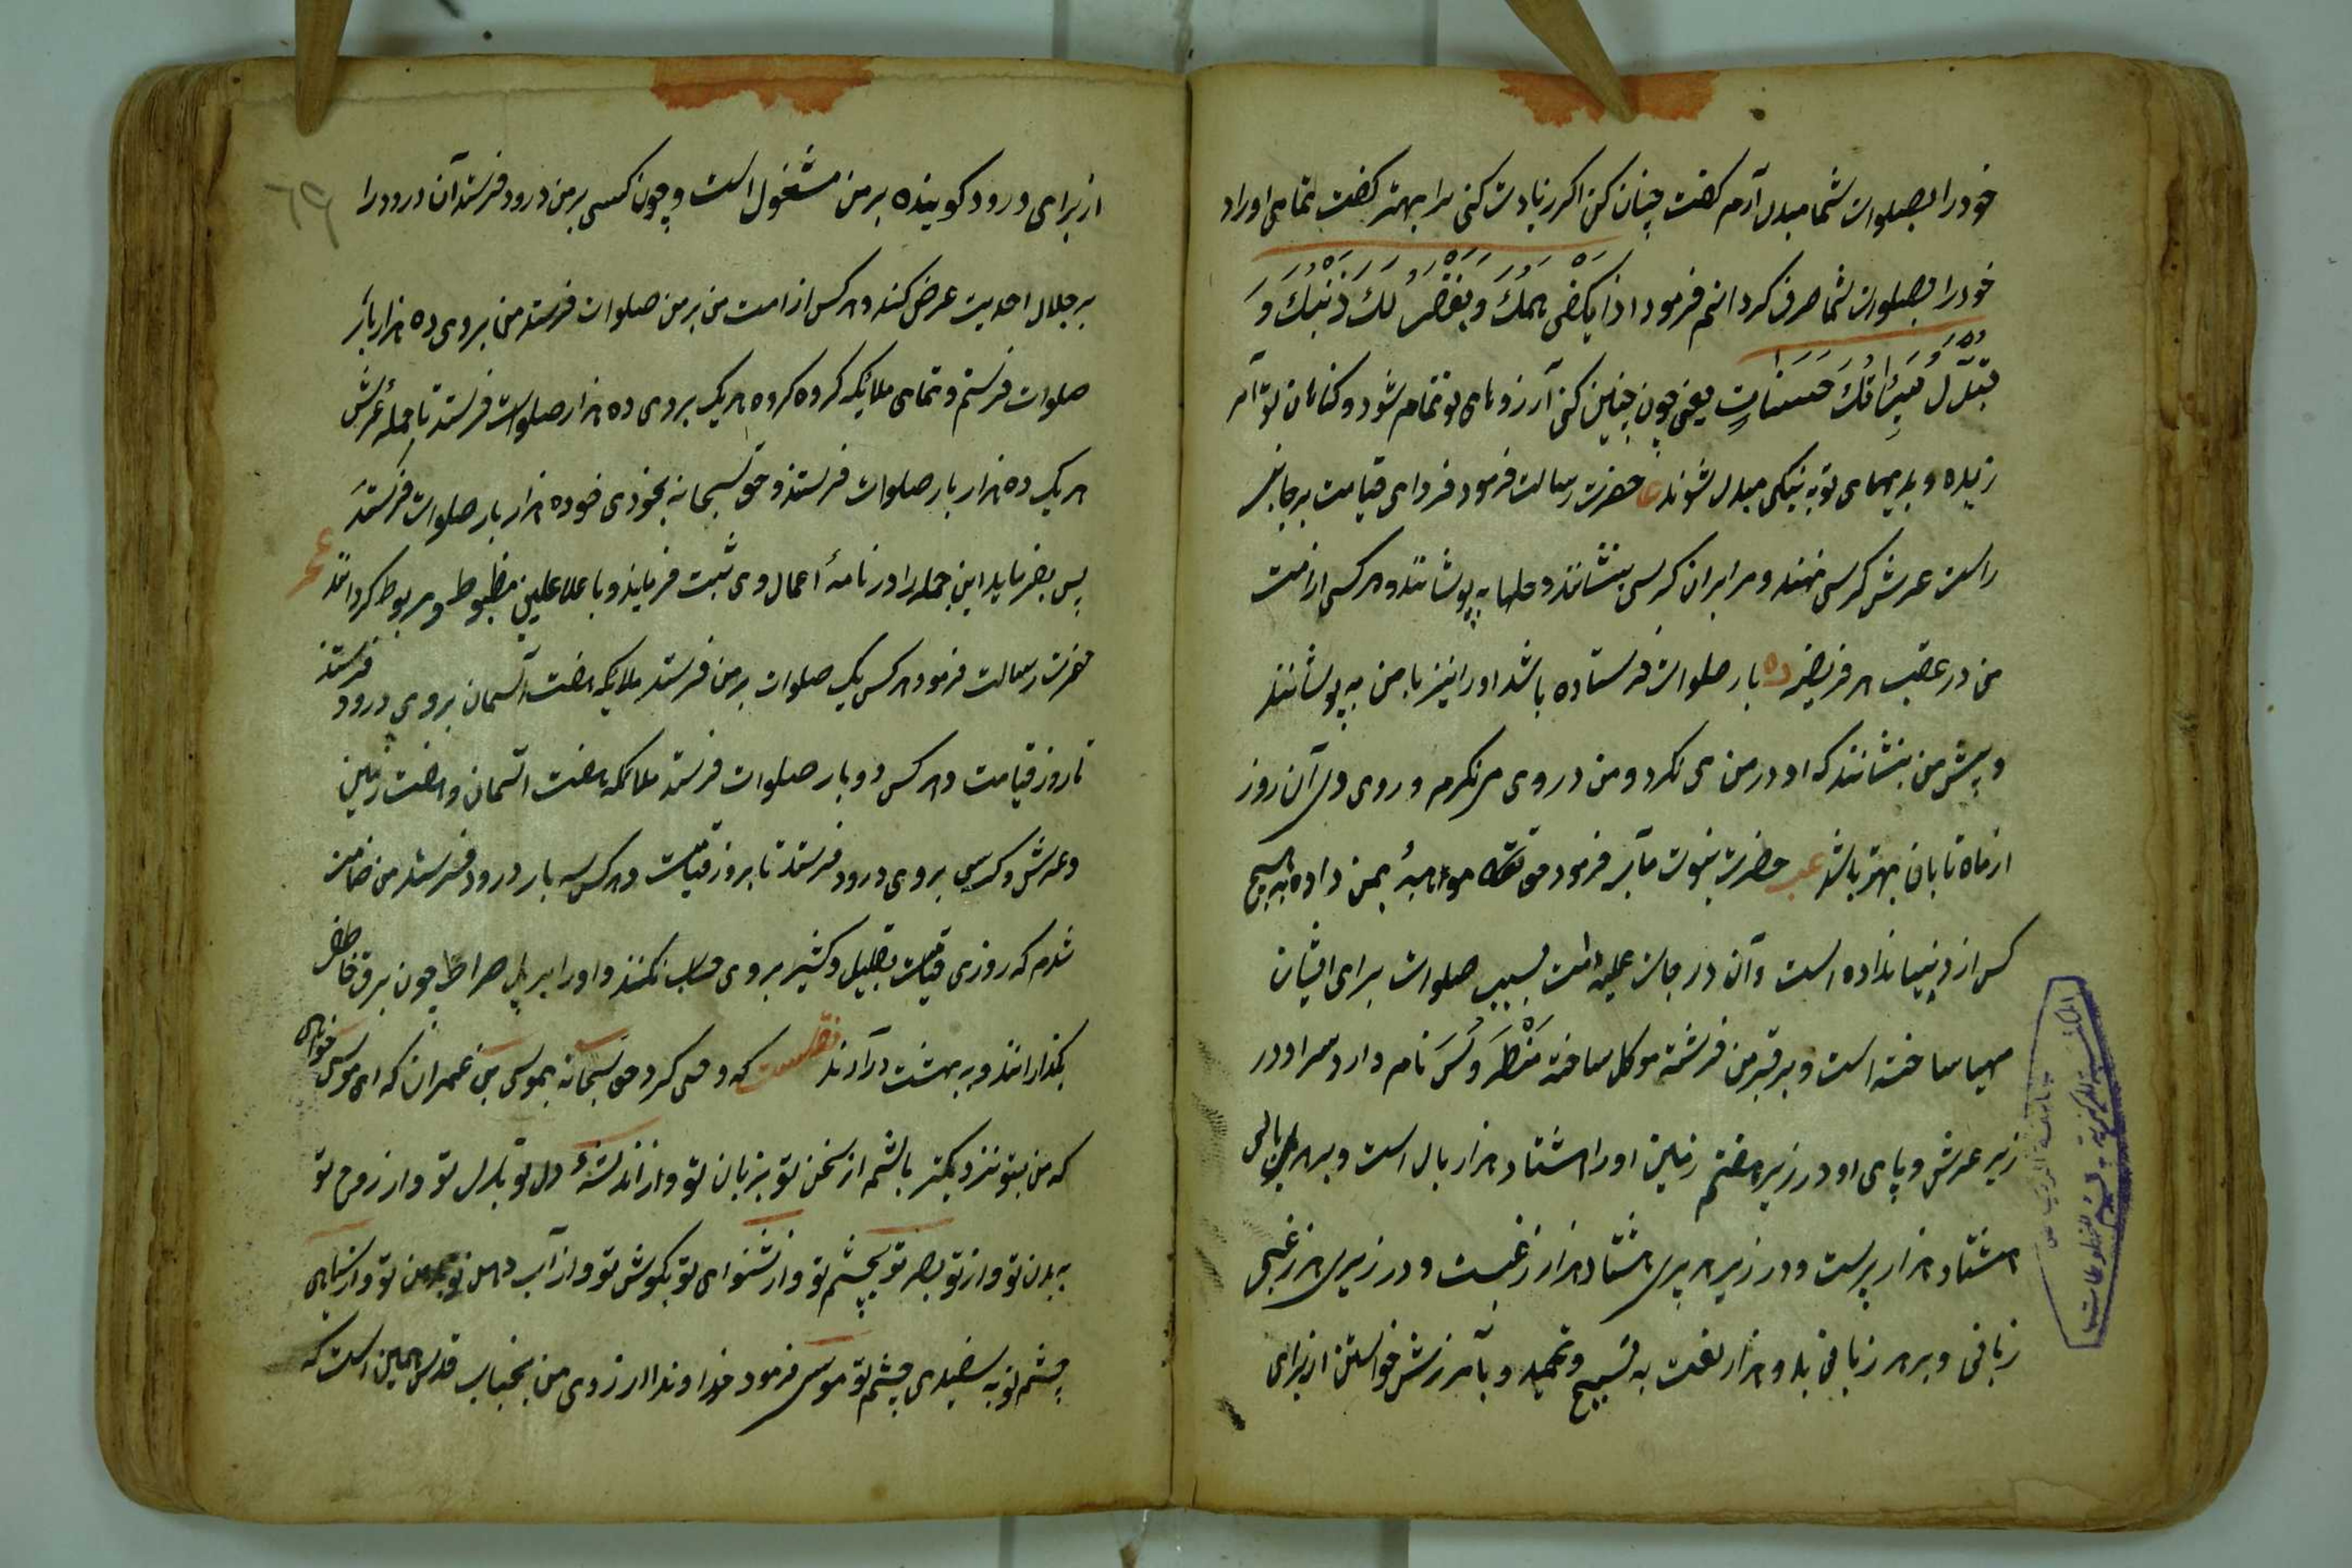 خود را بصلوات شما مبدل آرم گفت چنان کن اگر زیادت کنی ترا بهتر گفت تمامی اوراد
خود را بصلوات شما صرف گردانم فرمود اذا یکفی همک و یغفر لک ذنبک و
یبدل سیئاتک حسنات یعنی چون چنین کنی آرزوهای تو تمام شود و گناهان تو آمر
زیده و بدیهای تو به نیکی مبدل شوند حضرت رسالت فرمود فردای قیامت بر جانب
راست عرش کرسی نهند و مرا بران کرسی بنشانند و حلها به پوشانند و هر کسی از امت
من در عقب هر فریضه ده بار صلوات فرستاده باشد او را نیز با من به پوشانند
و پیش من بنشانند که او در من می نگرد و من در وی می نگرم و روی وی آن روز
از ماه تابان بهتر باشد حضرت نبوت مآب فرمود حق تعالی مواهبهٔ بمن داده به هیچ
کس از انبیا نداده است و آن درجات علیه امت بسبب صلوات برای ایشان
مهیا ساخته است و بر قبر من فرشته موکل ساخته منطروس نام دارد سر او در
زیر عرش و پای او در زیر هفتم زمین او را هشتاد هزار بال است و بر هر بالی
هشتاد هزار پرست و در زیر هر پری هشتاد هزار زغبست و در زیر هر زغبی
زبانی و بر هر زبانی بدو هزار لغت به تسبیح و تحمید و بآمرزش خواستن از برای
از برای درود گوینده بر من مشغول است و چون کسی بر من درود فرستد آن درود را
بر جلال احدیت عرض کند و هر کس از امت من بر من صلوات فرستد من بروی ده هزار بار
صلوات فرستم و تمامی ملائکه گروه گروه هر یک بروی ده هزار صلوات فرستد تا حمله عرش
هر یک ده هزار بار صلوات فرستند و حق سبحانه بخودی خود ده هزار بار صلوات فرستد
پس بفرماید این جمله را در نامهٔ اعمال وی ثبت فرمایند و با علا علیین مظبوط و مربوط گردانند
حضرت رسالت فرمود هر کس یک صلوات بر من فرستد ملایکه هفت آسمان بروی درود فرستند
تا روز قیامت و هر کس دو بار صلوات فرستد ملائکه هفت آسمان و هفت زمین
و عرش و کرسی بروی درود فرستند تا بروز قیامت و هر کس سه بار درود فرستد من ضامن
شدم که روزی قیامت بقلیل و کثیر بروی حساب نکنند و او را بر پل صراط چون برق خاطف
بگذارانند و به بهشت درآرند نقلست که وحی کرد حق سبحانه بموسی بن عمران که ای موسی خواهی
که من بتو نزدیکتر باشم از سخن تو بزبان تو و از اندیشهٔ دل تو بدل تو و از روح تو
به بدن تو و از تو بصر تو بچشم تو و از شنوای تو بگوش تو و از آب دهن تو بدهن تو و از سیاهی
چشم تو به سفیدی چشم تو موسی فرمود خداوندا آرزوی من بجناب قدس همین است که